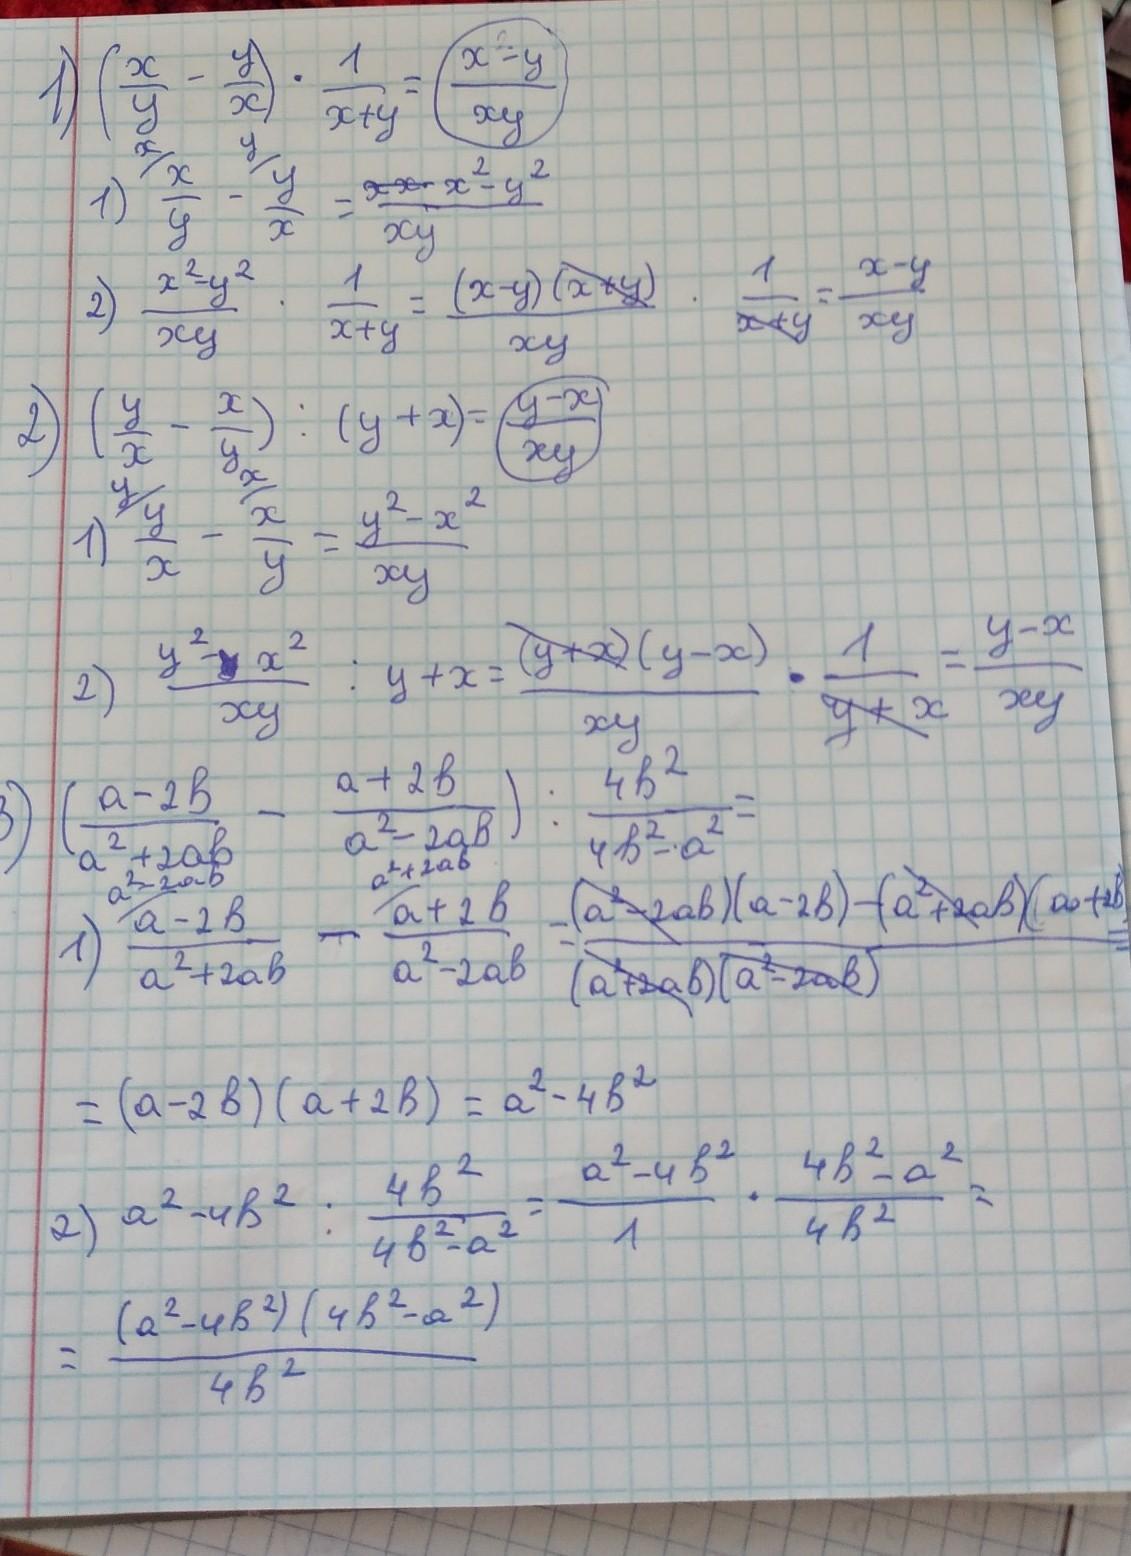 1) (x/y - y/x) · 1/(x+y) = (x-y)/(xy)
1) x/y - y/x = (x²-y²)/(xy)
2) (x²-y²)/(xy) · 1/(x+y) = ((x-y)(x+y))/(xy) · 1/(x+y) = (x-y)/(xy)
2) (y/x - x/y) : (y+x) = (y-x)/(xy)
1) y/x - x/y = (y²-x²)/(xy)
2) (y²-x²)/(xy) : y+x = ((y+x)(y-x))/(xy) · 1/(y+x) = (y-x)/(xy)
3) ((a-2b)/(a²+2ab) - (a+2b)/(a²-2ab)) : 4b²/(4b²-a²) =
a²-2ab a²+2ab
1) (a-2b)/(a²+2ab) - (a+2b)/(a²-2ab) = ((a²-2ab)(a-2b)-(a²+2ab)(a+2b))/((a²+2ab)(a²-2ab)) =
= (a-2b)(a+2b) = a²-4b²
2) a²-4b² : 4b²/(4b²-a²) = (a²-4b²)/1 · (4b²-a²)/(4b²) =
= ((a²-4b²)(4b²-a²))/(4b²)